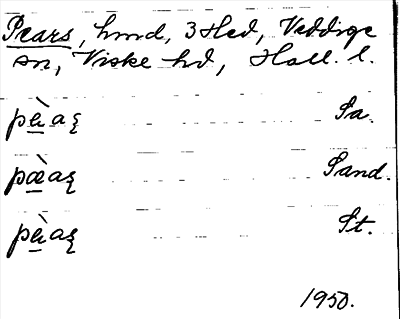 Pears, hmd, 3 Hed, Veddige
sn, Viske hd, Hall. l.
pàaʂ Sa.
pæ̀aʂ Sand.
pàaʂ St.
1950.